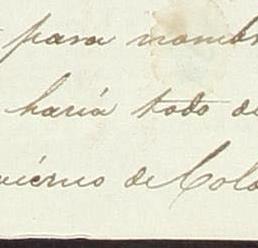 para nombr
haría todo de
vierno de Colo